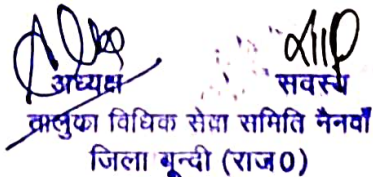 अध्यक्ष सदस्य
तालुका विधिक सेवा समिति नैनवाँ
जिला बून्दी (राज०)